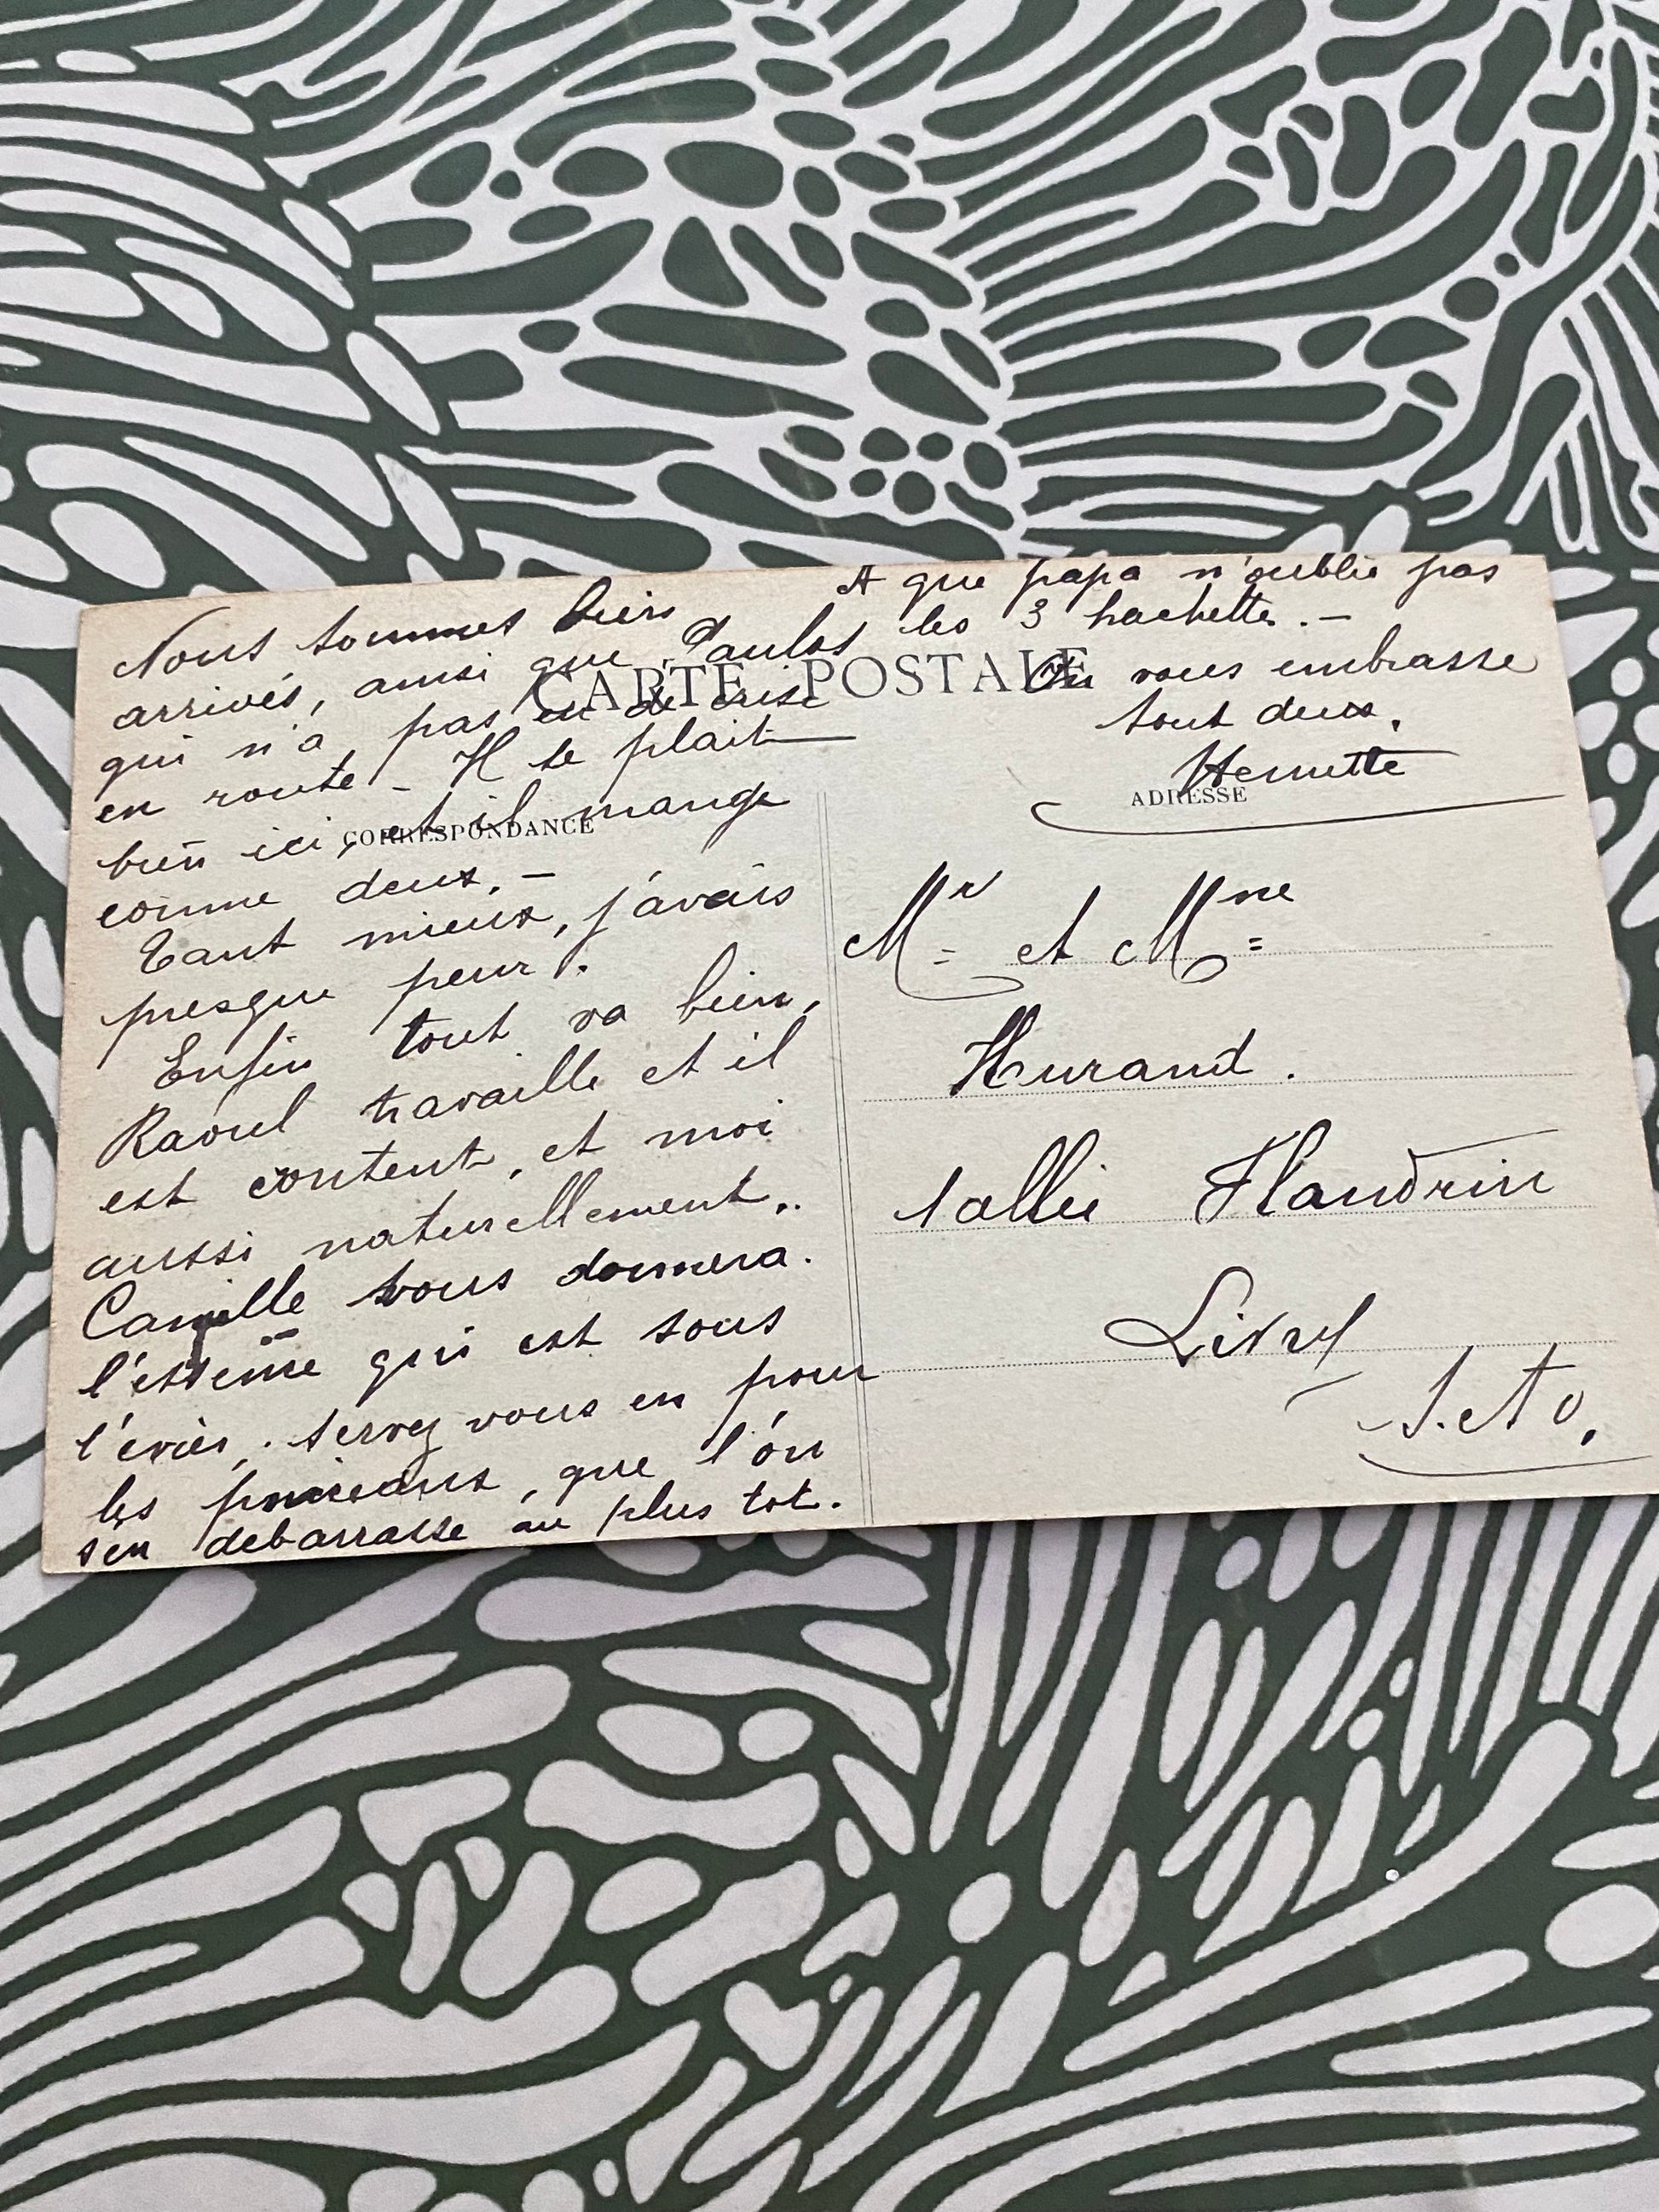 Nous sommes bien
arrivés, ainsi que Paulos
qui n'a pas eu de crise
en route - Il se plait
bien ici, et il mange
comme deux. -
Tant mieux, j'avais
presque peur.
Enfin tout va bien,
Raoul travaille et il
est content, et moi
aussi naturellement..
Camille vous donnera.
qui est sous
l'evier, servez vous en pour
les, que l'on
s'en debarrasse au plus tot.
A que papa n'oublie pas
les 3 hachette. -
On vous embrasse
tout deux.
CARTE POSTALE
CORRESPONDANCE
ADRESSE
Mr et Mme
Hurand.
1 allée Flandrin
Livry
S. et O.